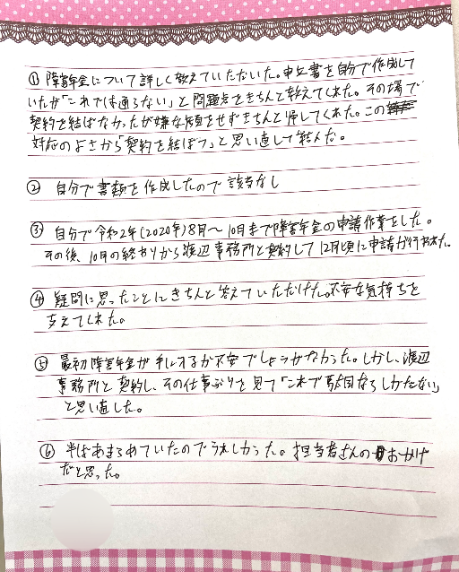 ① 障害年金について詳しく教えていただいた。申立書を自分で作成して
いたが「これでは通らない」と問題点をきちんと教えてくれた。その場で
契約を結ばなかったが嫌な顔をせずきちんと帰してくれた。この
対応のよさから「契約を結ぼう」と思い直して結んだ。
② 自分で書類を作成したので該当なし
③ 自分で令和2年(2020年)8月〜10月まで障害年金の申請作業をした。
その後、10月の終わりから渡辺事務所と契約して12月頃に申請が行われた。
④ 疑問に思ったことにきちんと答えていただけた。不安な気持ちを
支えてくれた。
⑤ 最初障害年金が手にするか不安でしょうがなかった。しかし、渡辺
事務所と契約し、その仕事ぶりを見て「これで駄目ならしかたない」
と思い直した。
⑥ 半ばあきらめていたのでうれしかった。担当者さんのおかげ
だと思った。